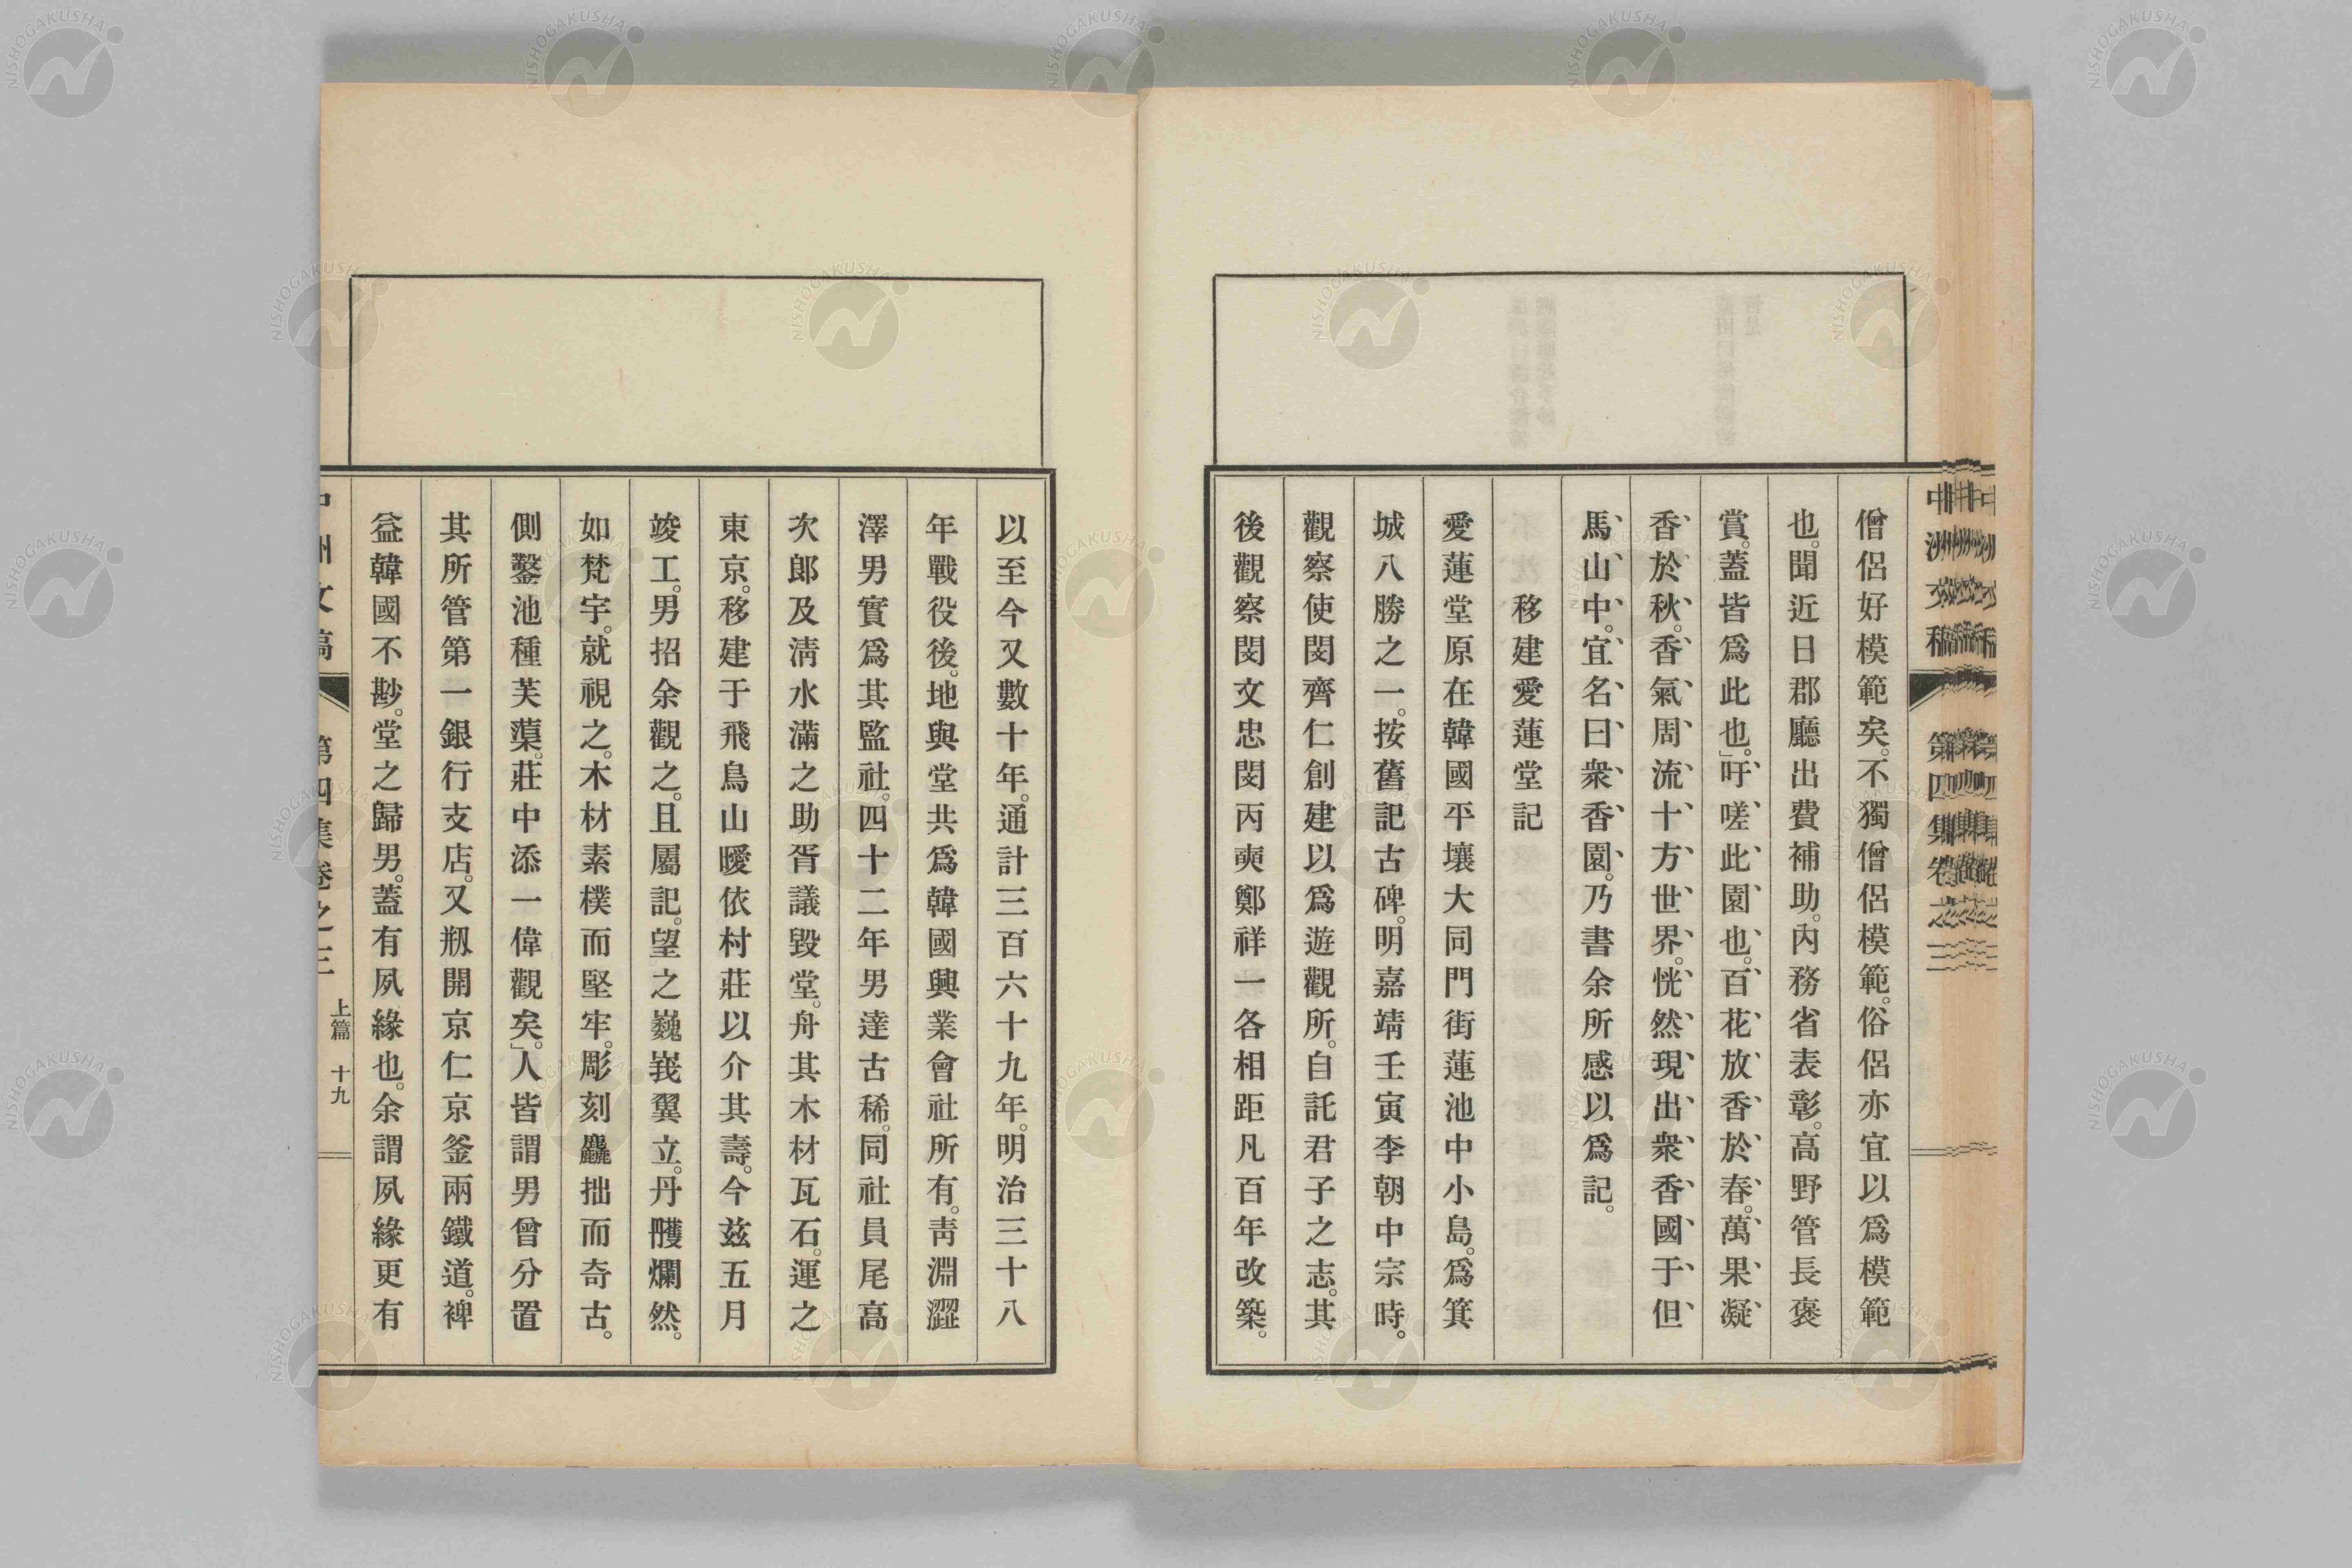 僧侶好模範矣。不獨僧侶模範。俗侶亦宜以爲模範
也。聞近日郡廳出費補助。內務省表彰。高野管長褒
賞。蓋皆爲此也。」吁嗟此園也。百花放香於春。萬果凝
香於秋。香氣周流十方世界。恍然現出衆香國于但
馬山中。宜名曰衆香園。乃書余所感以爲記。
移建愛蓮堂記
愛蓮堂原在韓國平壤大同門街蓮池中小島。爲箕
城八勝之一。按舊記古碑。明嘉靖壬寅李朝中宗時。
觀察使閔齊仁創建以爲遊觀所。自託君子之志。其
後觀察閔文忠閔丙奭鄭祥一各相距凡百年改築。
以至今又數十年。通計三百六十九年。明治三十八
年戰役後。地與堂共爲韓國興業會社所有。靑淵澀
澤男實爲其監社。四十二年男達古稀。同社員尾高
次郎及淸水滿之助胥議毀堂。舟其木材瓦石。運之
東京。移建于飛鳥山曖依村莊以介其壽。今玆五月
竣工。男招余觀之。且屬記。望之巍峩翼立。丹雘爛然。
如梵宇。就視之。木材素樸而堅牢。彫刻麤拙而奇古。
側鑿池種芙蕖。莊中添一偉觀矣。」人皆謂男曾分置
其所管第一銀行支店。又剏開京仁京釜兩鐵道。裨
益韓國不尠。堂之歸男。蓋有夙緣也。余謂夙緣更有
中洲文稿 第四集卷之三 上篇 十九
中洲文稿 第四集卷之三
NISHOGAKUSHA